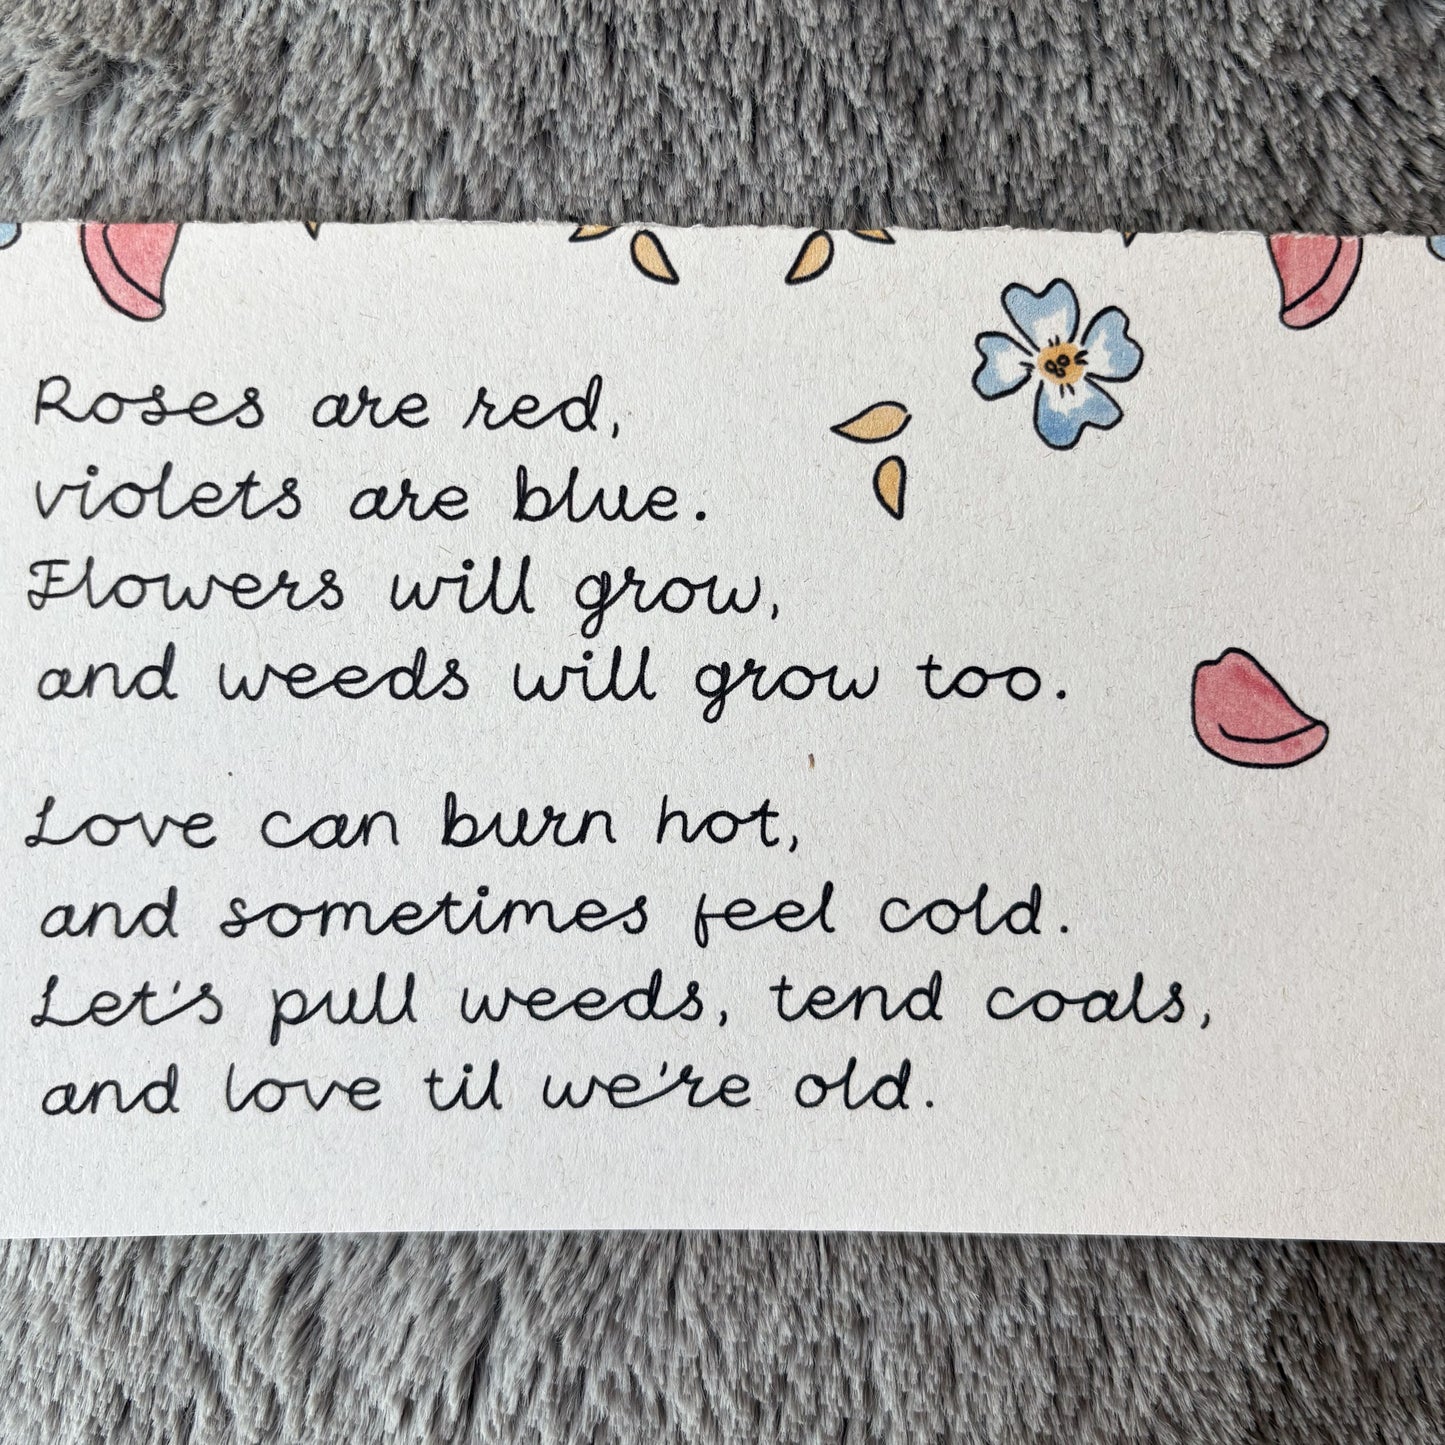 Roses are red,
violets are blue.
Flowers will grow,
and weeds will grow too.
Love can burn hot,
and sometimes feel cold.
Let's pull weeds, tend coals,
and love til we're old.